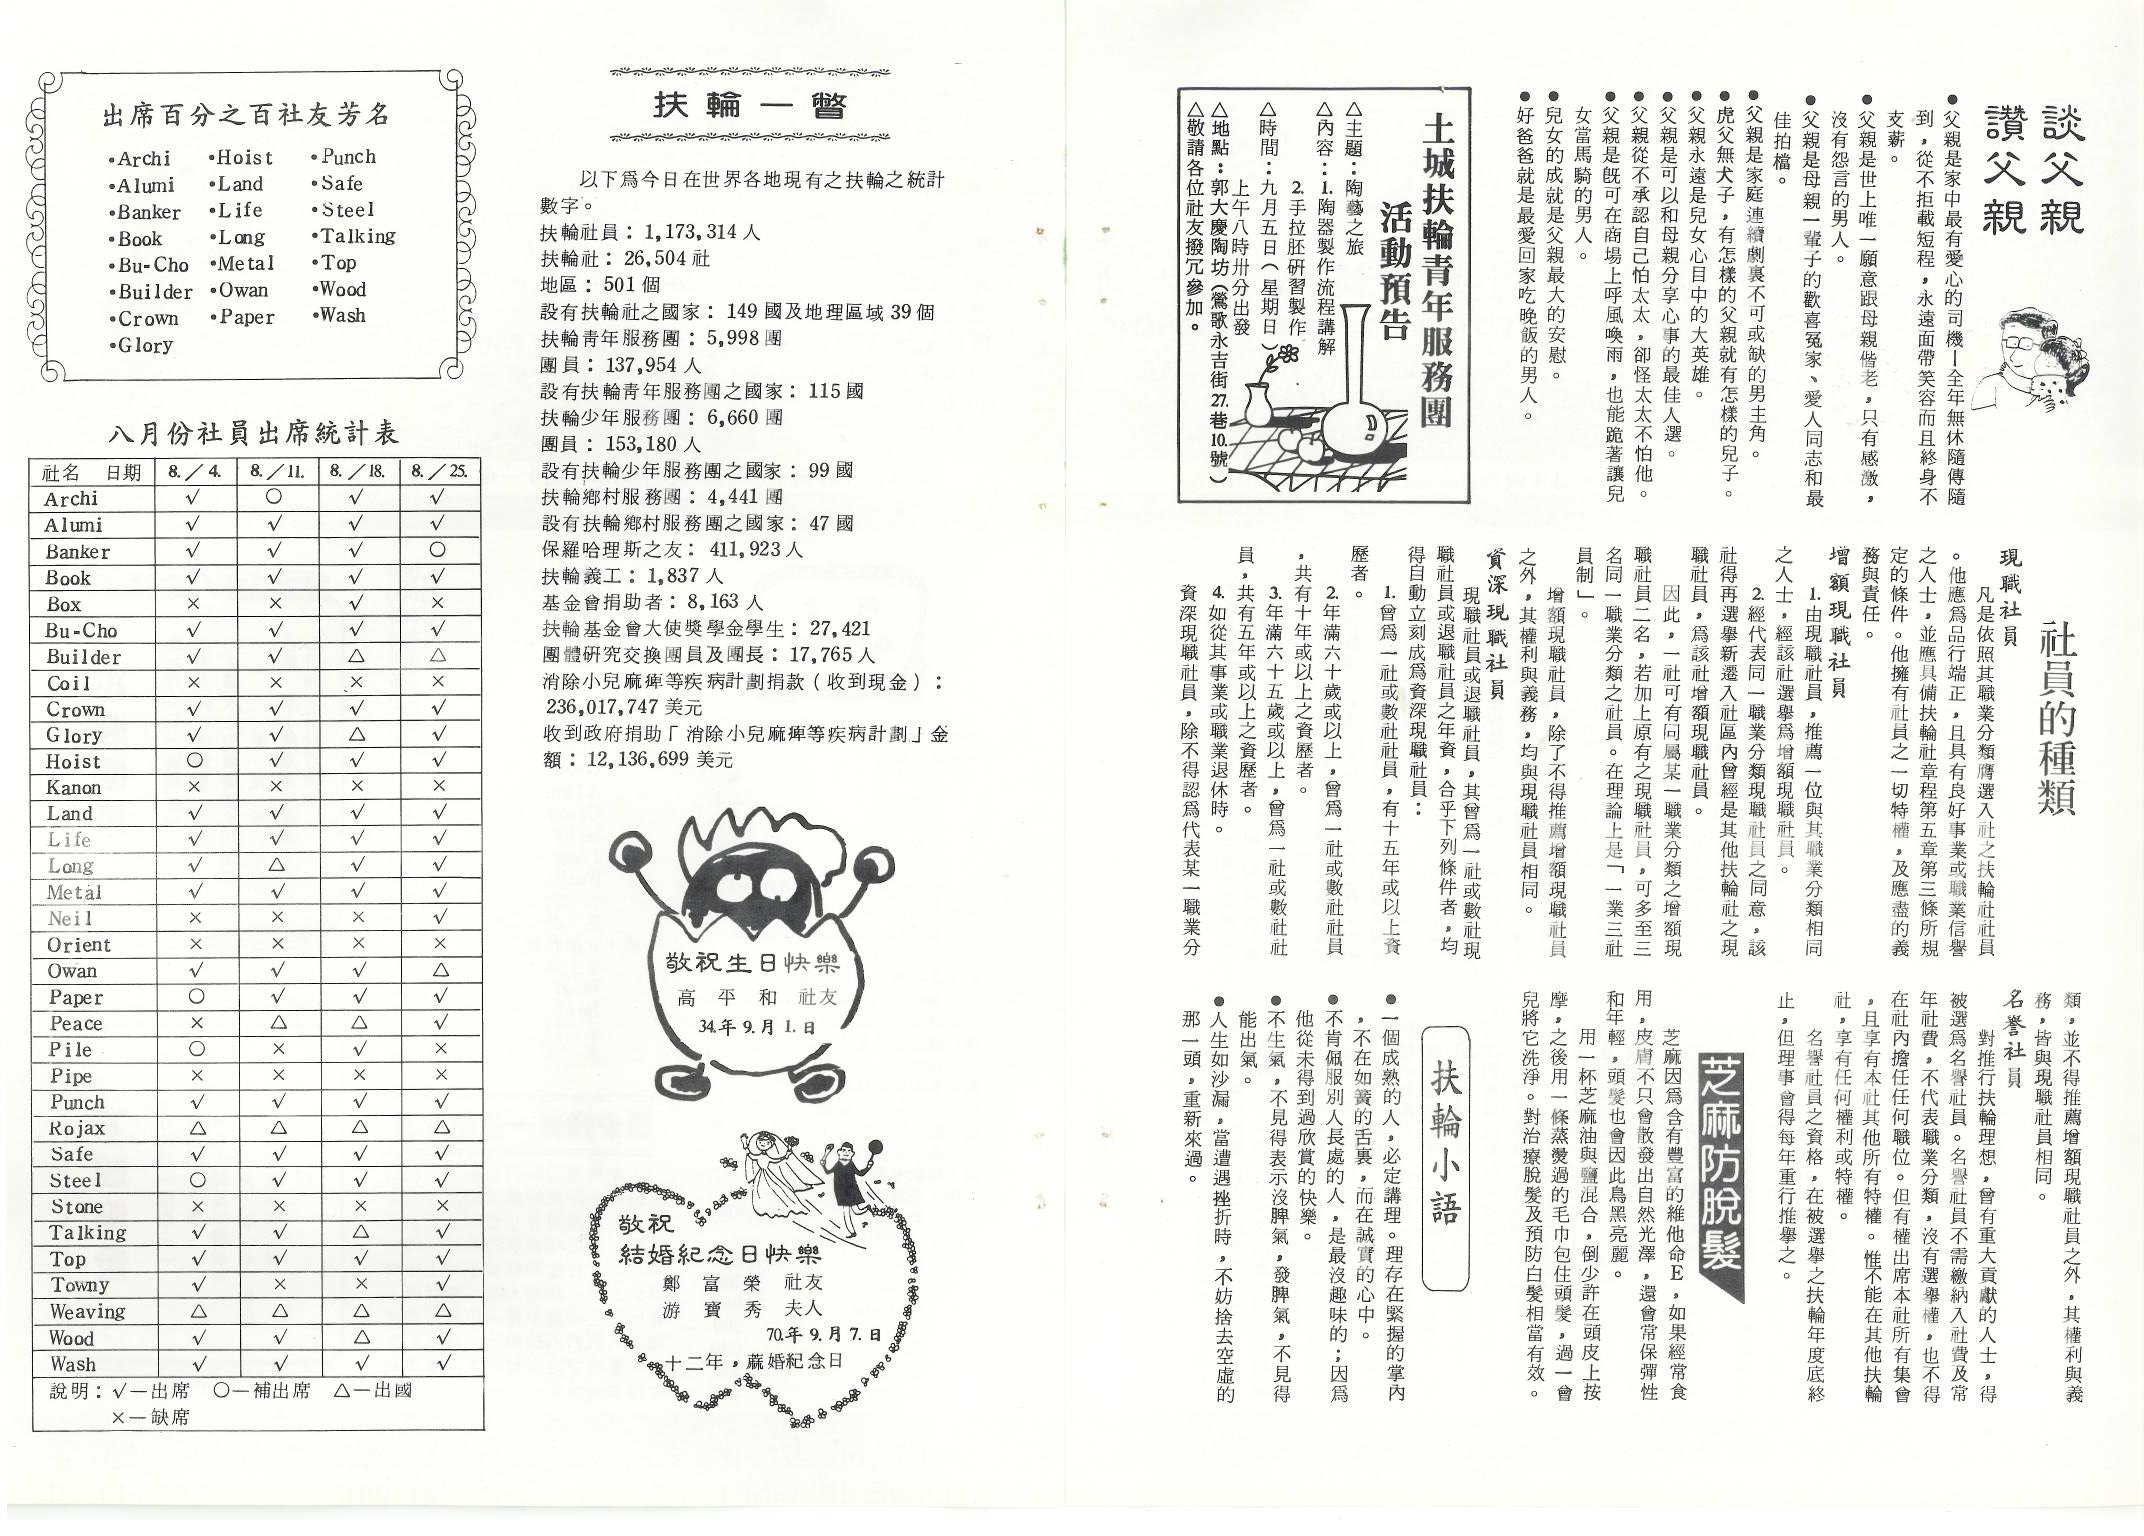 談父親
讚父親
●父親是家中最有愛心的司機—全年無休隨傳隨
到，從不拒載短程，永遠面帶笑容而且終身不
支薪。
●父親是世上唯一願意跟母親偕老，只有感激，
沒有怨言的男人。
●父親是母親一輩子的歡喜冤家、愛人同志和最
佳拍檔。
●父親是家庭連續劇裏不可或缺的男主角。
●虎父無犬子，有怎樣的父親就有怎樣的兒子。
●父親永遠是兒女心目中的大英雄。
●父親是可以和母親分享心事的最佳人選。
●父親從不承認自己怕太太，卻怪太太不怕他。
●父親是既可在商場上呼風喚雨，也能跪著讓兒
女當馬騎的男人。
●兒女的成就是父親最大的安慰。
●好爸爸就是最愛回家吃晚飯的男人。
土城扶輪青年服務團
活動預告
△主題：陶藝之旅
△內容：1.陶器製作流程講解
2.手拉胚研習製作
△時間：九月五日（星期日）
上午八時卅分出發
△地點：郭大慶陶坊（鶯歌永吉街27.巷10.號）
△敬請各位社友撥冗參加。
社員的種類
現職社員
凡是依照其職業分類膺選入社之扶輪社社員
。他應爲品行端正，且具有良好事業或職業信譽
之人士，並應具備扶輪社章程第五章第三條所規
定的條件。他擁有社員之一切特權，及應盡的義
務與責任。
增額現職社員
1.由現職社員，推薦一位與其職業分類相同
之人士，經該社選舉爲增額現職社員。
2.經代表同一職業分類現職社員之同意，該
社得再選舉新遷入社區內曾經是其他扶輪社之現
職社員，爲該社增額現職社員。
因此，一社可有同屬某一職業分類之增額現
職社員二名，若加上原有之現職社員，可多至三
名同一職業分類之社員。在理論上是「一業三社
員制」。
增額現職社員，除了不得推薦增額現職社員
之外，其權利與義務，均與現職社員相同。
資深現職社員
現職社員或退職社員，其曾爲一社或數社現
職社員或退職社員之年資，合乎下列條件者，均
得自動立刻成爲資深現職社員：
1.曾爲一社或數社社員，有十五年或以上資
歷者。
2.年滿六十歲或以上，曾爲一社或數社社員
，共有十年或以上之資歷者。
3.年滿六十五歲或以上，曾爲一社或數社社
員，共有五年或以上之資歷者。
4.如從其事業或職業退休時。
資深現職社員，除不得認爲代表某一職業分
類，並不得推薦增額現職社員之外，其權利與義
務，皆與現職社員相同。
名譽社員
對推行扶輪理想，曾有重大貢獻的人士，得
被選爲名譽社員。名譽社員不需繳納入社費及常
年社費，不代表職業分類，沒有選舉權，也不得
在社內擔任任何職位。但有權出席本社所有集會
，且享有本社其他所有特權。惟不能在其他扶輪
社，享有任何權利或特權。
名譽社員之資格，在被選舉之扶輪年度底終
止，但理事會得每年重行推舉之。
芝麻防脫髮
芝麻因爲含有豐富的維他命E，如果經常食
用，皮膚不只會散發出自然光澤，還會常保彈性
和年輕，頭髮也會因此烏黑亮麗。
用一杯芝麻油與鹽混合，倒少許在頭皮上按
摩，之後用一條蒸燙過的毛巾包住頭髮，過一會
兒將它洗淨。對治療脫髮及預防白髮相當有效。
扶輪小語
●一個成熟的人，必定講理。理存在緊握的掌內
，不在如簧的舌裏，而在誠實的心中。
●不肯佩服別人長處的人，是最沒趣味的；因爲
他從未得到過欣賞的快樂。
●不生氣，不見得表示沒脾氣，發脾氣，不見得
能出氣。
●人生如沙漏，當遭遇挫折時，不妨捨去空虛的
那一頭，重新來過。
扶輪一瞥
以下爲今日在世界各地現有之扶輪之統計
數字。
扶輪社員：1,173,314人
扶輪社：26,504社
地區：501個
設有扶輪社之國家：149國及地理區域39個
扶輪靑年服務團：5,998團
團員：137,954人
設有扶輪靑年服務團之國家：115國
扶輪少年服務團：6,660團
團員：153,180人
設有扶輪少年服務團之國家：99國
扶輪鄉村服務團：4,441團
設有扶輪鄉村服務團之國家：47國
保羅哈理斯之友：411,923人
扶輪義工：1,837人
基金會捐助者：8,163人
扶輪基金會大使獎學金學生：27,421
團體研究交換團員及團長：17,765人
消除小兒麻痺等疾病計劃捐款（收到現金）：
236,017,747美元
收到政府捐助「消除小兒麻痺等疾病計劃」金
額：12,136,699美元
敬祝生日快樂
高平和 社友
34.年9.月1.日
敬祝
結婚紀念日快樂
鄭富榮 社友
游寶秀 夫人
70.年9.月7.日
十二年，蔴婚紀念日
出席百分之百社友芳名
•Archi •Hoist •Punch
•Alumi •Land •Safe
•Banker •Life •Steel
•Book •Long •Talking
•Bu-Cho •Metal •Top
•Builder •Owan •Wood
•Crown •Paper •Wash
•Glory
八月份社員出席統計表
社名 日期 8.／4. 8.／11. 8.／18. 8.／25.
Archi √ ○ √ √
Alumi √ √ √ √
Banker √ √ √ ○
Book √ √ √ √
Box × × √ ×
Bu-Cho √ √ √ √
Builder √ √ △ △
Coil × × × ×
Crown √ √ √ √
Glory √ √ △ √
Hoist ○ √ √ √
Kanon × × × ×
Land √ √ √ √
Life √ √ √ √
Long √ △ √ √
Metal √ √ √ √
Neil × × × √
Orient × × × ×
Owan √ √ √ △
Paper ○ √ √ √
Peace × △ △ √
Pile ○ × √ ×
Pipe × × × ×
Punch √ √ √ √
Rojax △ △ △ △
Safe √ √ √ √
Steel ○ √ √ √
Stone × × × ×
Talking √ √ △ √
Top √ √ √ √
Towny √ × × √
Weaving △ △ △ △
Wood √ √ △ √
Wash √ √ √ √
說明：√—出席 ○—補出席 △—出國
×—缺席